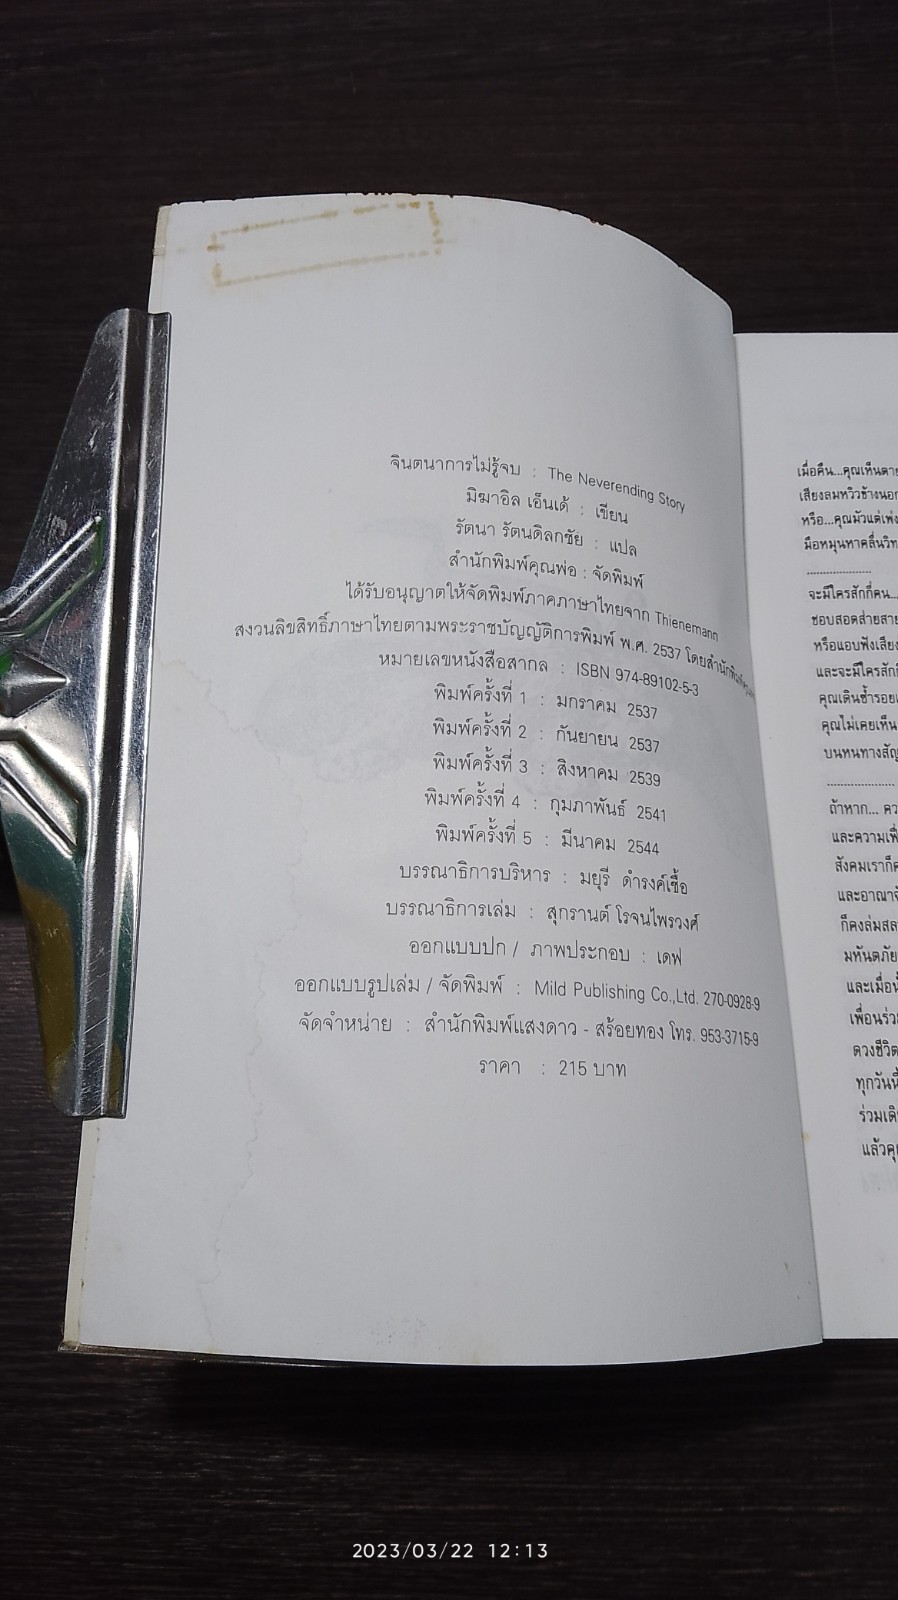 จินตนาการไม่รู้จบ : The Neverending Story
มิฆาอิล เอ็นเด้ : เขียน
รัตนา รัตนดิลกชัย : แปล
สำนักพิมพ์คุณพ่อ : จัดพิมพ์
ได้รับอนุญาตให้จัดพิมพ์ภาคภาษาไทยจาก Thienemann
สงวนลิขสิทธิ์ภาษาไทยตามพระราชบัญญัติการพิมพ์ พ.ศ. 2537 โดยสำนักพิมพ์คุณพ่อ
หมายเลขหนังสือสากล : ISBN 974-89102-5-3
พิมพ์ครั้งที่ 1 : มกราคม 2537
พิมพ์ครั้งที่ 2 : กันยายน 2537
พิมพ์ครั้งที่ 3 : สิงหาคม 2539
พิมพ์ครั้งที่ 4 : กุมภาพันธ์ 2541
พิมพ์ครั้งที่ 5 : มีนาคม 2544
บรรณาธิการบริหาร : มยุรี ดำรงค์เชื้อ
บรรณาธิการเล่ม : สุกรานต์ โรจนไพรวงศ์
ออกแบบปก / ภาพประกอบ : เดฟ
ออกแบบรูปเล่ม / จัดพิมพ์ : Mild Publishing Co.,Ltd. 270-0928-9
จัดจำหน่าย : สำนักพิมพ์แสงดาว - สร้อยทอง โทร. 953-3715-9
ราคา : 215 บาท
เมื่อคืน...คุณเห็นดาย
เสียงลมหวิวข้างนอก
หรือ...คุณมัวแต่เพ่ง
มือหมุนหาคลื่นวิท
....................
จะมีใครสักกี่คน...
ชอบสอดส่ายสาย
หรือแอบฟังเสียง
และจะมีใครสักกี่
คุณเดินซ้ำรอยเ
คุณไม่เคยเห็น
บนหนทางสัญ
....................
ถ้าหาก... คว
และความเพื่
สังคมเราก็ค
และอาณาจั
ก็คงล่มสล
มหันตภัย
และเมื่อนั้
เพื่อนร่วม
ดวงชีวิต
ทุกวันนี้
ร่วมเดิ
แล้วคุ
2023/03/22 12:13